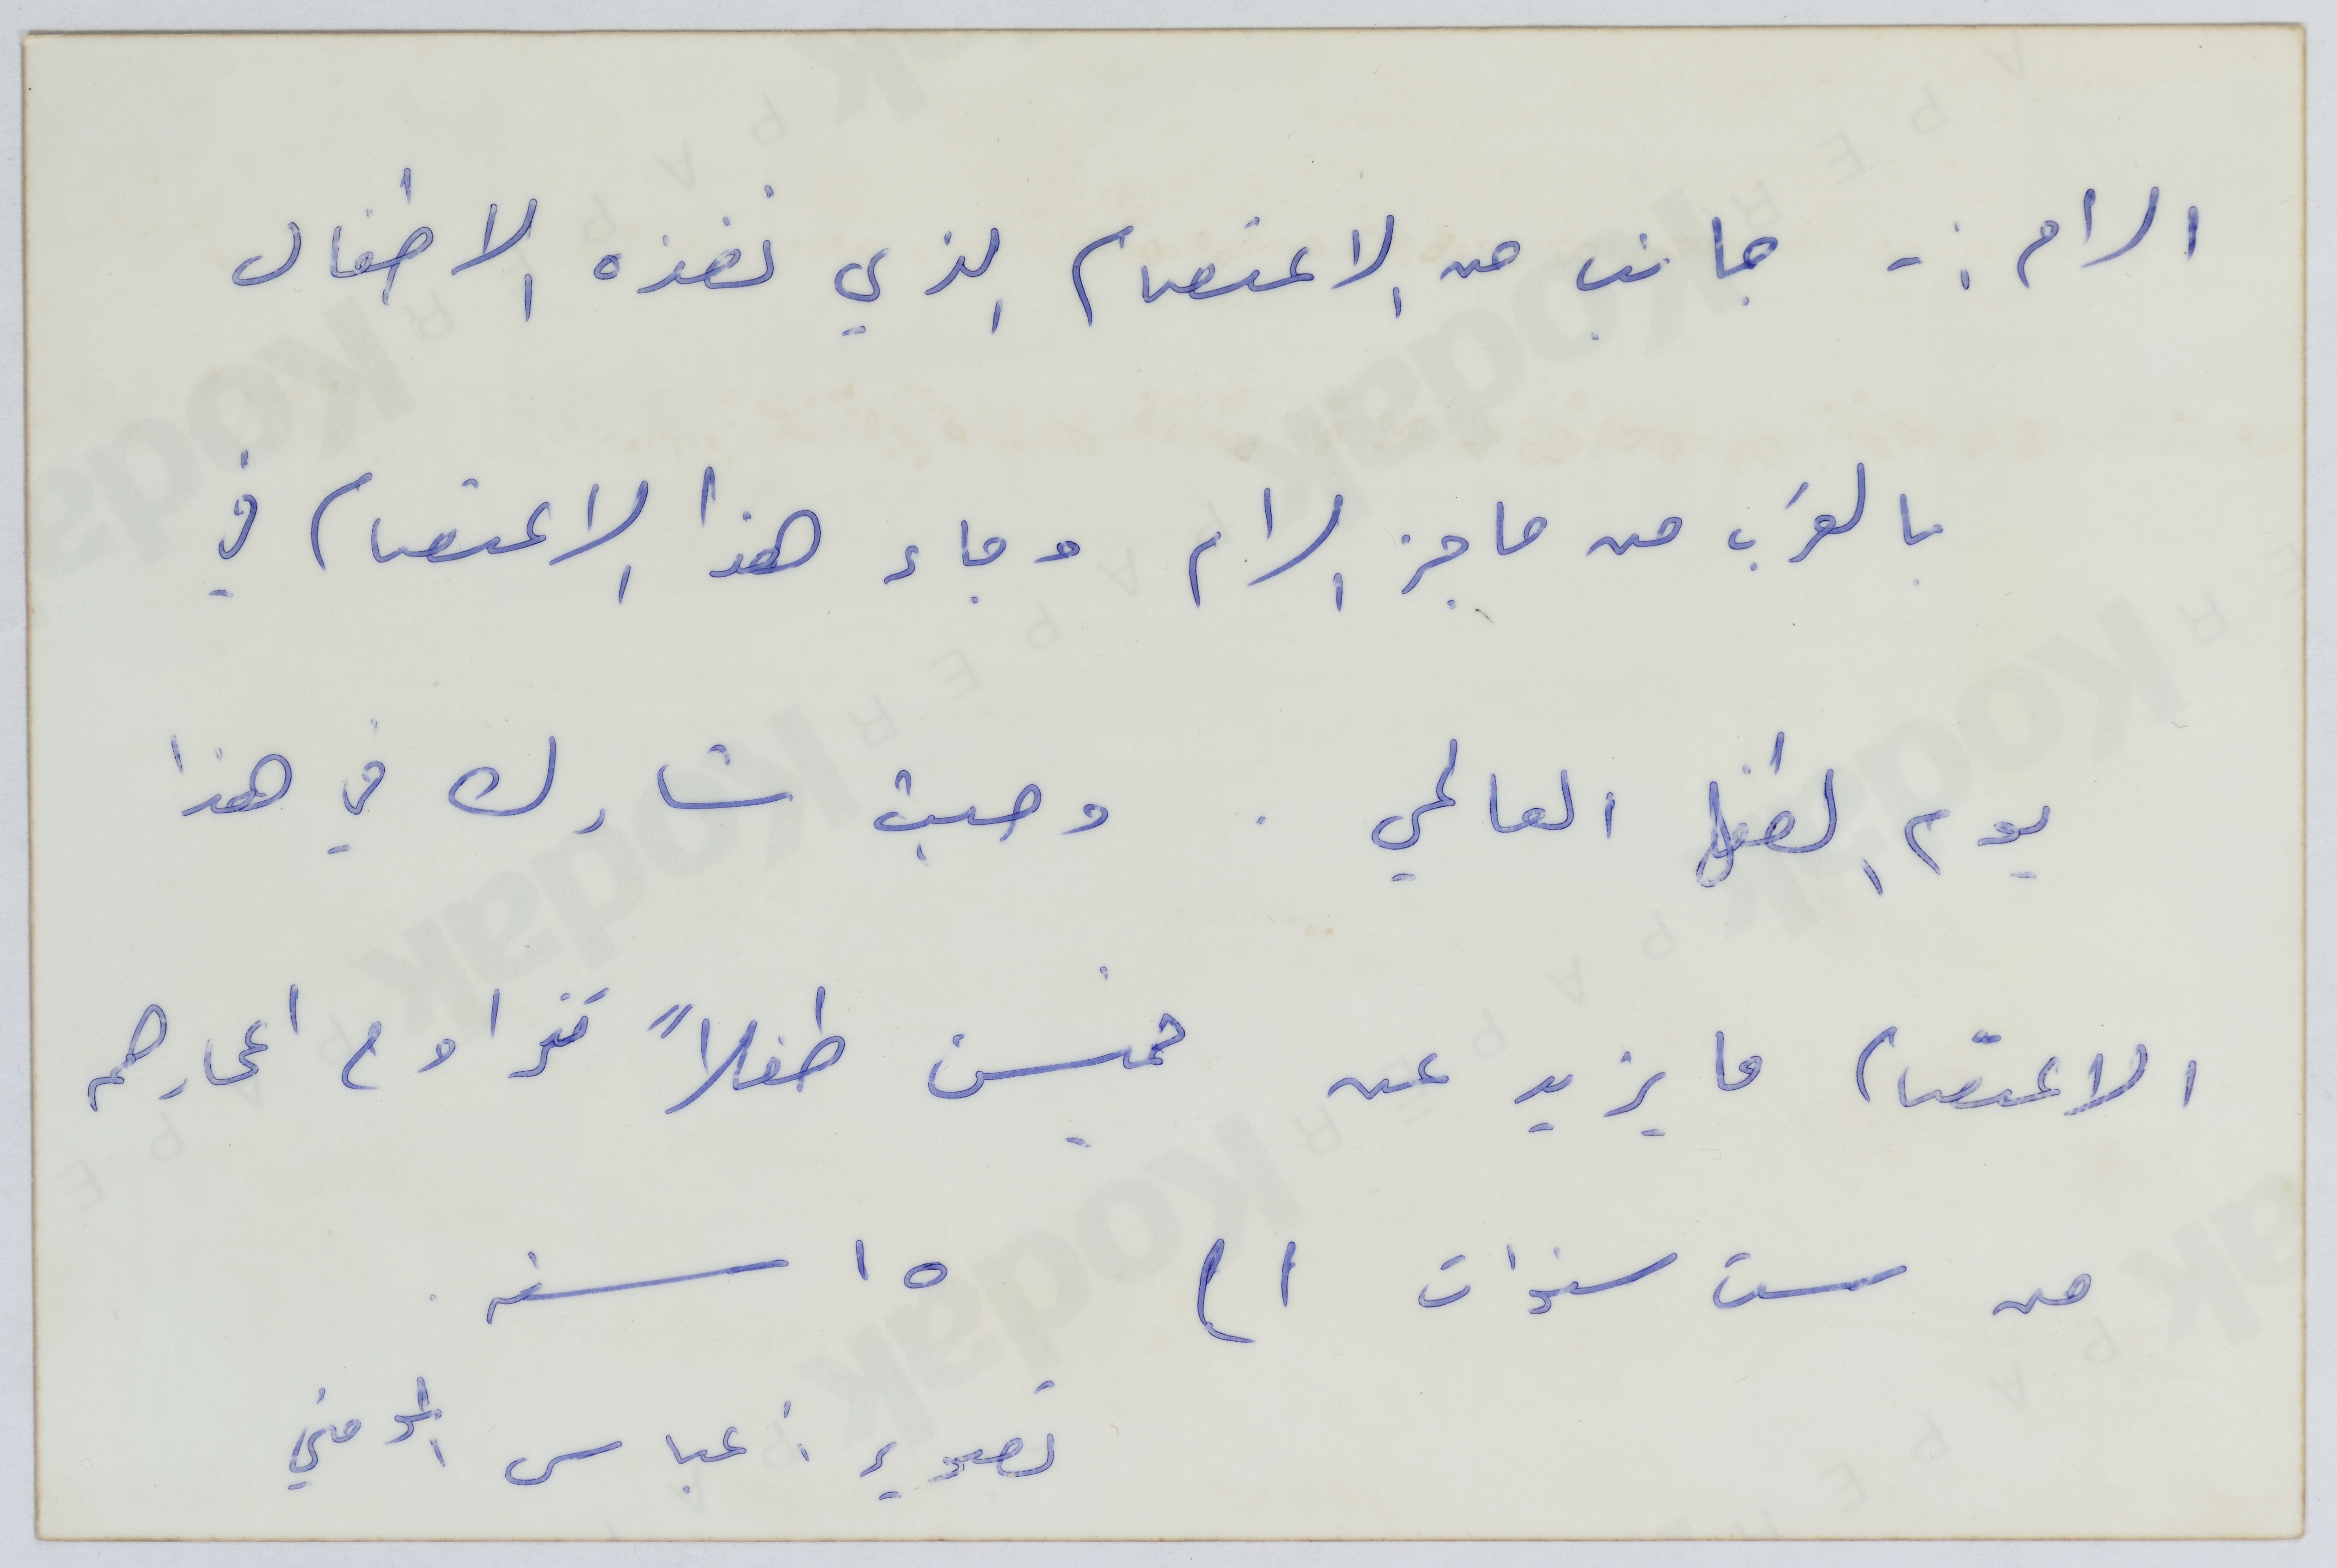 الرام :- جانب من الاعتصام الذي نفذه الاطفال
بالقرب من حاجز الرام وجاء هذا الاعتصام في
يوم الطفل العالمي . وحيث شارك في هذا
الاعتصام ما يزيد عن خمسين طفلاً تتراوح اعمارهم
من ست سنوات الى ١٥ سنه .
تصوير : عباس المومني
Kodak
Kodak
Kodak
Kodak
Kodak
Kodak